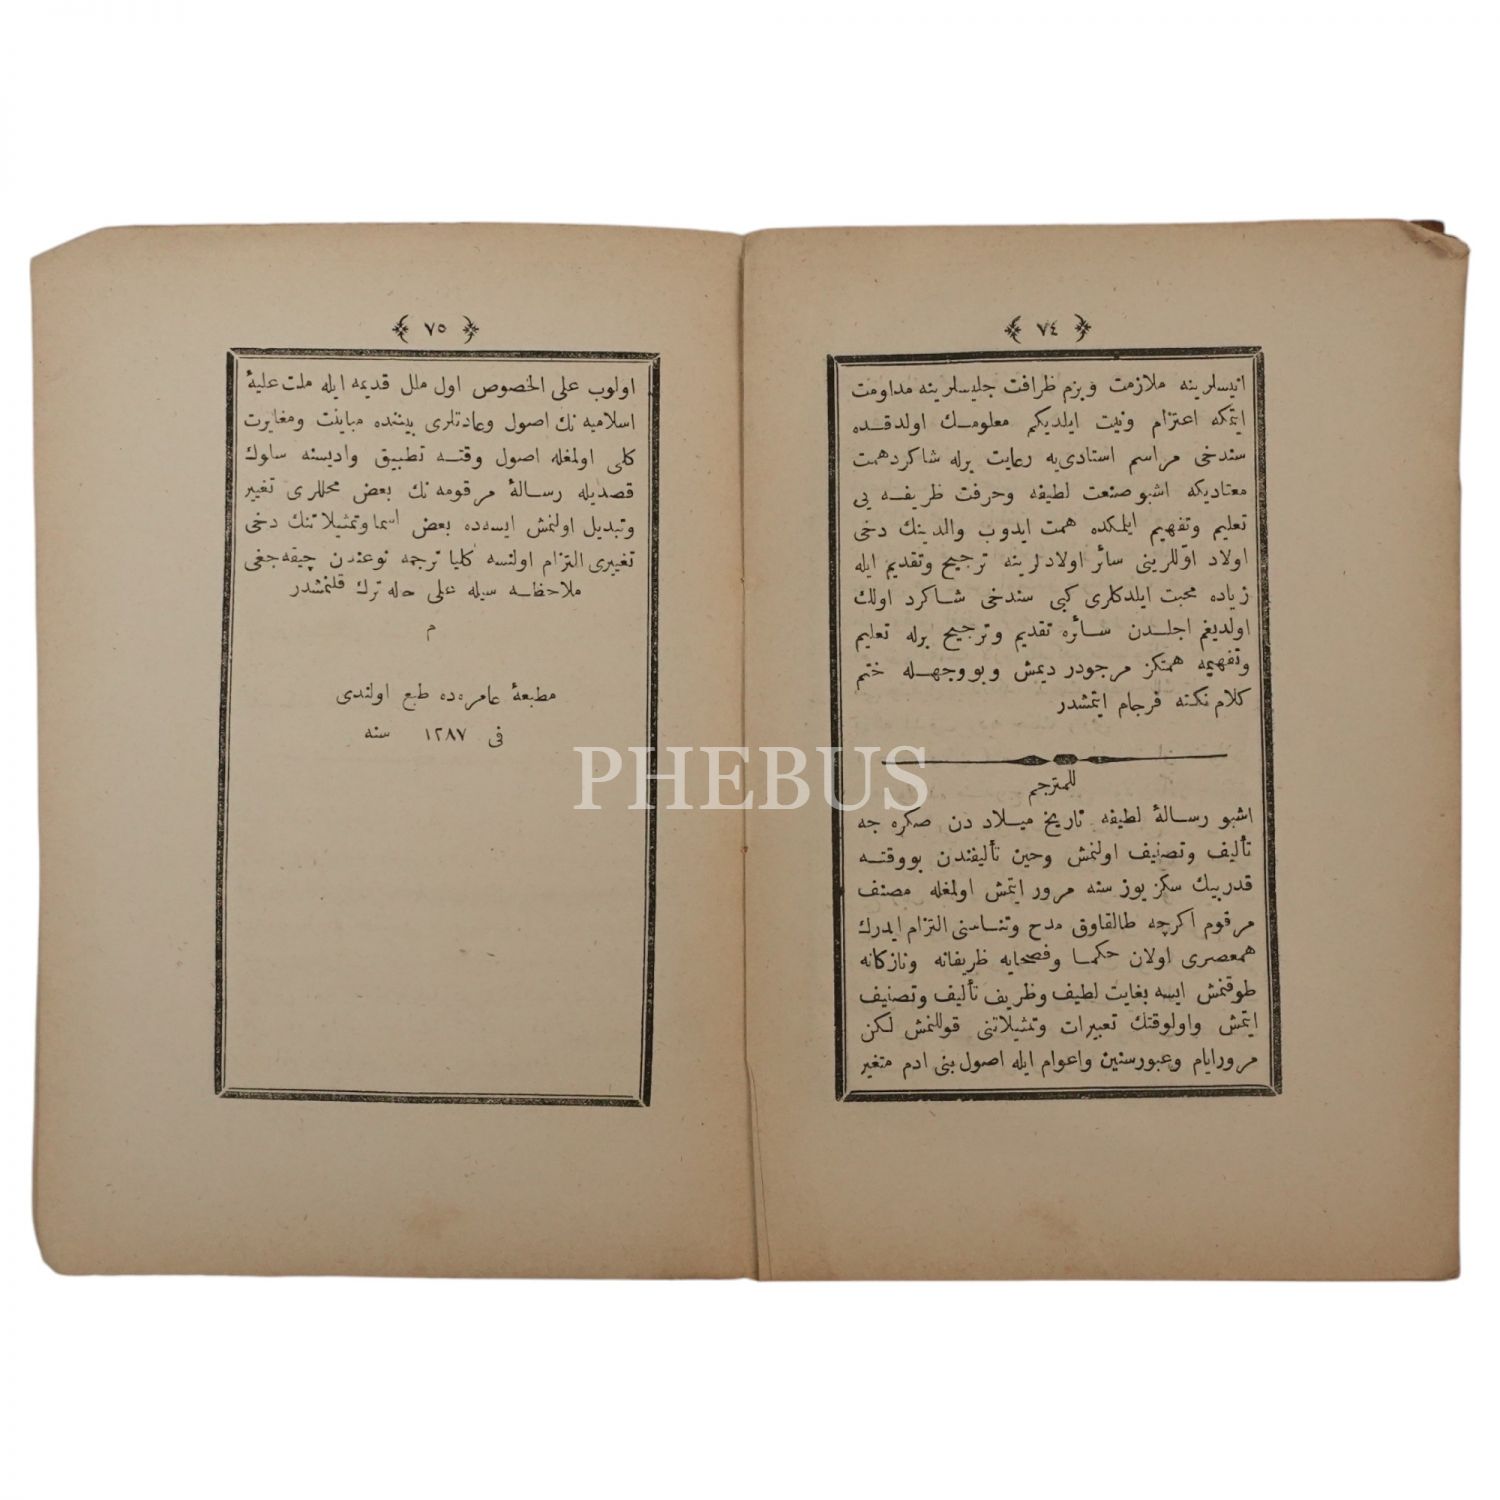 ٧٤
انيسلرينه ملازمت وبزم ظرافت جليسلرينه مداومت
ايتمكه اعتزام ونيت ايلديكم معلومك اولدقده
سندخى مراسم استادىيه رعايت برله شاكردهمت
معتاديكه اشبو صنعت لطيفه وحرفت ظريفه يى
تعليم وتفهيم ايلمكده همت ايدوب والدينك دخى
اولاد اوّللرينى سائر اولادلرينه ترجيح وتقديم ايله
زياده محبت ايلدكلرى كبى سندخى شاكرد اولك
اولديغم اجلدن سائره تقديم وترجيح برله تعليم
وتفهيمه همتكز مرجودر ديمش وبووجهله ختم
كلام نكته فرجام ايتمشدر
للمترجم
اشبو رسالهٔ لطيفه تاريخ ميلاد دن صكره جه
تأليف وتصنيف اولنمش وحين تأليفندن بووقته
قدر بيك سكز يوز سنه مرور ايتمش اولمغله مصنف
مرقوم اكرچه طالقاوق مدح وثناسنى التزام ايدرك
همعصرى اولان حكما وفصحايه ظريفانه ونازكانه
طوقنمش ايسه بغايت لطيف وظريف تأليف وتصنيف
ايتمش واولوقتك تعبيرات وتمثيلاتنى قوللنمش لكن
مرورايام وعبورسنين واعوام ايله اصول بنى ادم متغير
٧٥
اولوب على الخصوص اول ملل قديمه ايله ملت عليهٔ
اسلاميه نك اصول وعادتلرى بيننده مباينت ومغايرت
كلى اولمغله اصول وقته تطبيق واديسنه سلوك
قصديله رسالهٔ مرقومه نك بعض محللرى تغيير
وتبديل اولنمش ايسه ده بعض اسما وتمثيلاتنك دخى
تغييرى التزام اولنسه كليا ترجمه نوعندن چيقه جغى
ملاحظه سيله على حاله ترك قلنمشدر
م
مطبعهٔ عامره ده طبع اولندى
فى ١٢٨٧ سنه
PHEBUS